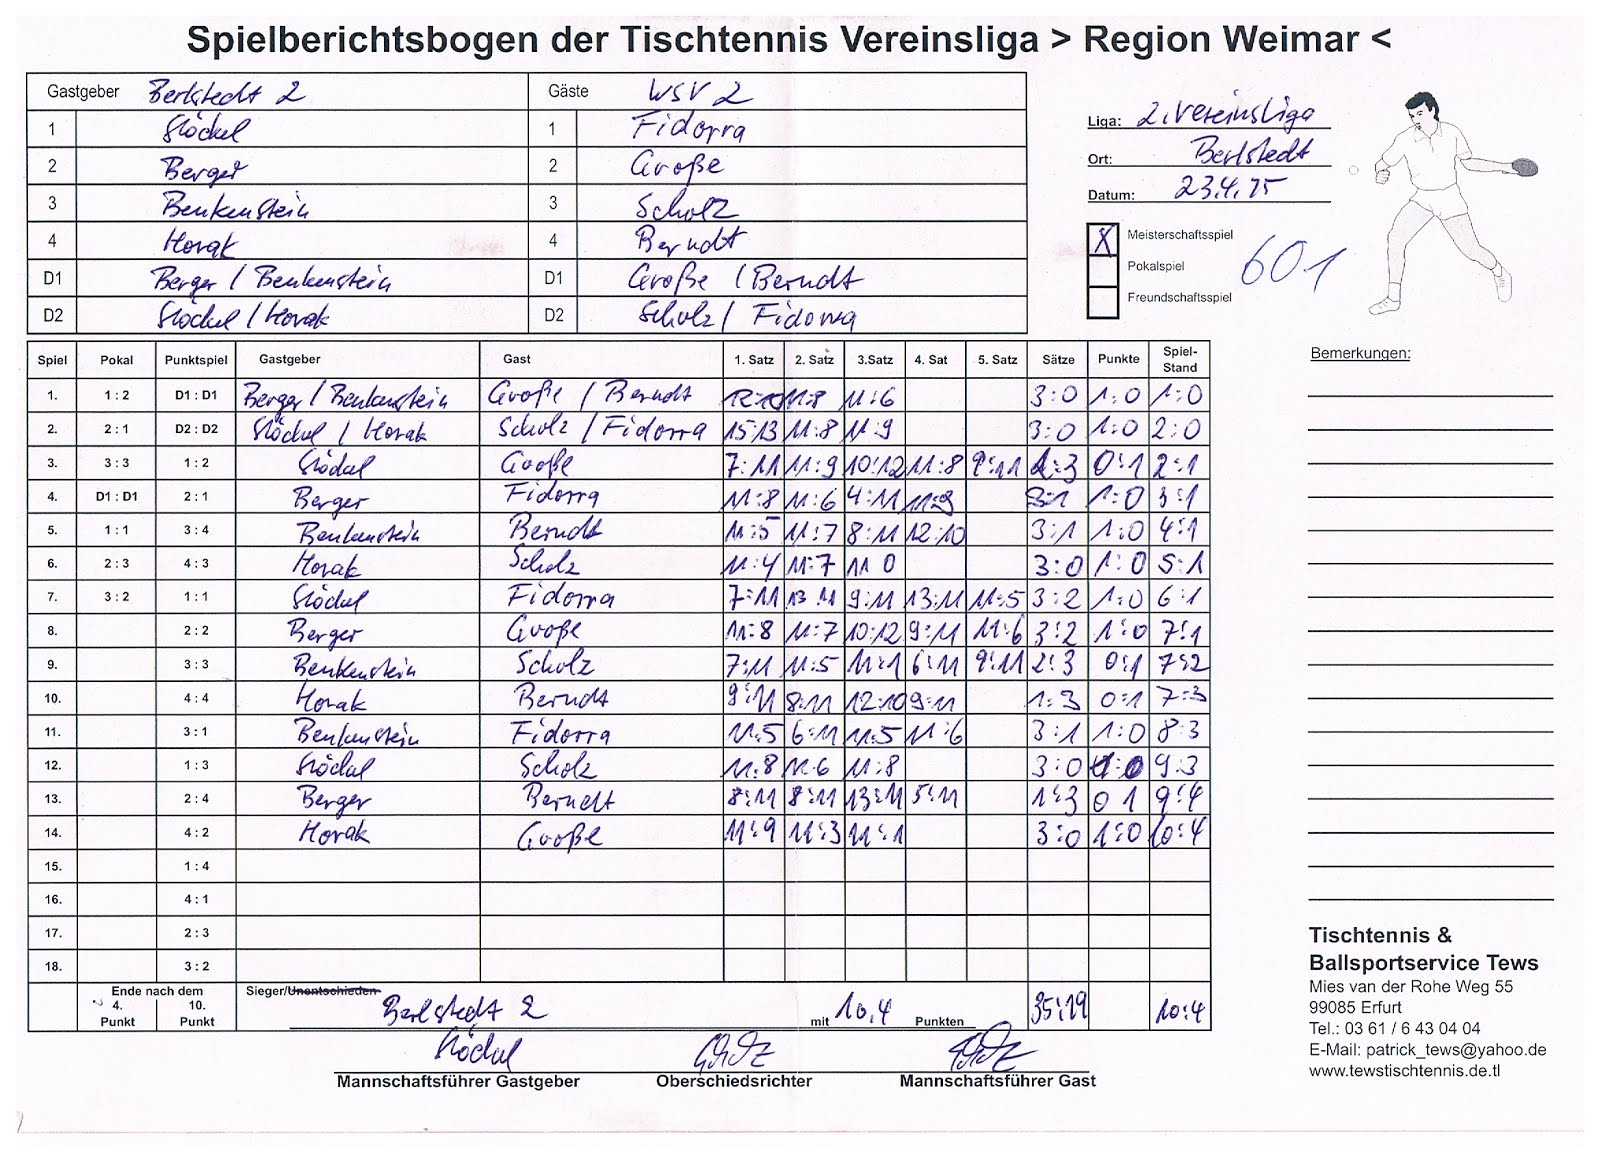 Spielberichtsbogen der Tischtennis Vereinsliga > Region Weimar <
Gastgeber Berlstedt 2 Gäste WSV 2
1 Stöckel 1 Fidorra
2 Berger 2 Große
3 Benkenstein 3 Scholz
4 Horak 4 Berndt
D1 Berger / Benkenstein D1 Große / Berndt
D2 Stöckel / Horak D2 Scholz / Fidorra
Liga: 2. Vereinsliga
Ort: Berlstedt
Datum: 23.4.15
X Meisterschaftsspiel
Pokalspiel
Freundschaftsspiel
601
Spiel Pokal Punktspiel Gastgeber Gast 1. Satz 2. Satz 3.Satz 4. Sat 5. Satz Sätze Punkte Spiel-Stand
1. 1 : 2 D1 : D1 Berger / Benkenstein Große / Berndt 12:10 11:8 11:6 3:0 1:0 1:0
2. 2 : 1 D2 : D2 Stöckel / Horak Scholz / Fidorra 15:13 11:8 11:9 3:0 1:0 2:0
3. 3 : 3 1 : 2 Stöckel Große 7:11 11:9 10:12 11:8 9:11 2:3 0:1 2:1
4. D1 : D1 2 : 1 Berger Fidorra 11:8 11:6 4:11 11:9 3:1 1:0 3:1
5. 1 : 1 3 : 4 Benkenstein Berndt 11:5 11:7 8:11 12:10 3:1 1:0 4:1
6. 2 : 3 4 : 3 Horak Scholz 11:4 11:7 11 0 3:0 1:0 5:1
7. 3 : 2 1 : 1 Stöckel Fidorra 7:11 13 11 9:11 13:11 11:5 3:2 1:0 6:1
8. 2 : 2 Berger Große 11:8 11:7 10:12 9:11 11:6 3:2 1:0 7:1
9. 3 : 3 Benkenstein Scholz 7:11 11:5 11:1 6:11 9:11 2:3 0:1 7:2
10. 4 : 4 Horak Berndt 9:11 8:11 12:10 9:11 1:3 0:1 7:3
11. 3 : 1 Benkenstein Fidorra 11:5 6:11 11:5 11:6 3:1 1:0 8:3
12. 1 : 3 Stöckel Scholz 11:8 11:6 11:8 3:0 1:0 9:3
13. 2 : 4 Berger Berndt 8:11 8:11 13:11 5:11 1:3 0 1 9:4
14. 4 : 2 Horak Große 11:9 11:3 11:1 3:0 1:0 10:4
15. 1 : 4
16. 4 : 1
17. 2 : 3
18. 3 : 2
Ende nach dem
4. Punkt 10. Punkt
Sieger/Unentschieden Berlstedt 2 mit 10.4 Punkten 35:19 10:4
Stöckel
Mannschaftsführer Gastgeber Oberschiedsrichter Mannschaftsführer Gast
Bemerkungen:
Tischtennis &
Ballsportservice Tews
Mies van der Rohe Weg 55
99085 Erfurt
Tel.: 03 61 / 6 43 04 04
E-Mail: patrick_tews@yahoo.de
www.tewstischtennis.de.tl